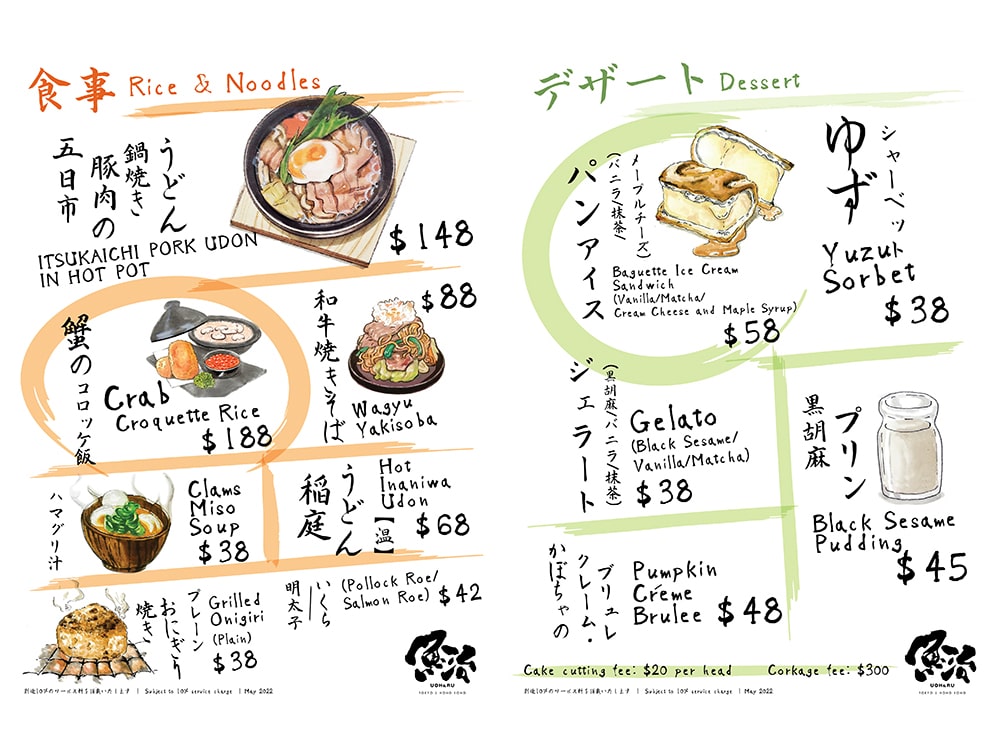 食事 Rice & Noodles
五日市
豚肉の
鍋焼き
うどん
ITSUKAICHI PORK UDON
IN HOT POT
$148
蟹のコロッケ飯
Crab
Croquette Rice
$188
和牛焼きそば
$88
Wagyu
Yakisoba
ハマグリ汁
Clams
Miso
Soup
$38
稲庭
うどん
【温】
Hot
Inaniwa
Udon
$68
焼き
おにぎり
プレーン
Grilled
Onigiri
(Plain)
$38
明太子
いくら
(Pollock Roe/
Salmon Roe)
$42
Subject to 10% service charge | May 2022
魚治
UOHARU
TOKYO & HONG KONG
デザート Dessert
パンアイス
(バニラ/抹茶/
メープルチーズ)
Baguette Ice Cream
Sandwich
(Vanilla/Matcha/
Cream Cheese and Maple Syrup)
$58
ゆず
シャーベット
Yuzu
Sorbet
$38
ジェラート
(黒胡麻/バニラ/抹茶)
Gelato
(Black Sesame/
Vanilla/Matcha)
$38
黒胡麻
プリン
Black Sesame
Pudding
$45
かぼちゃの
クレーム・
ブリュレ
Pumpkin
Crème
Brulee
$48
Cake cutting fee: $20 per head
Corkage fee: $300
Subject to 10% service charge | May 2022
魚治
UOHARU
TOKYO & HONG KONG